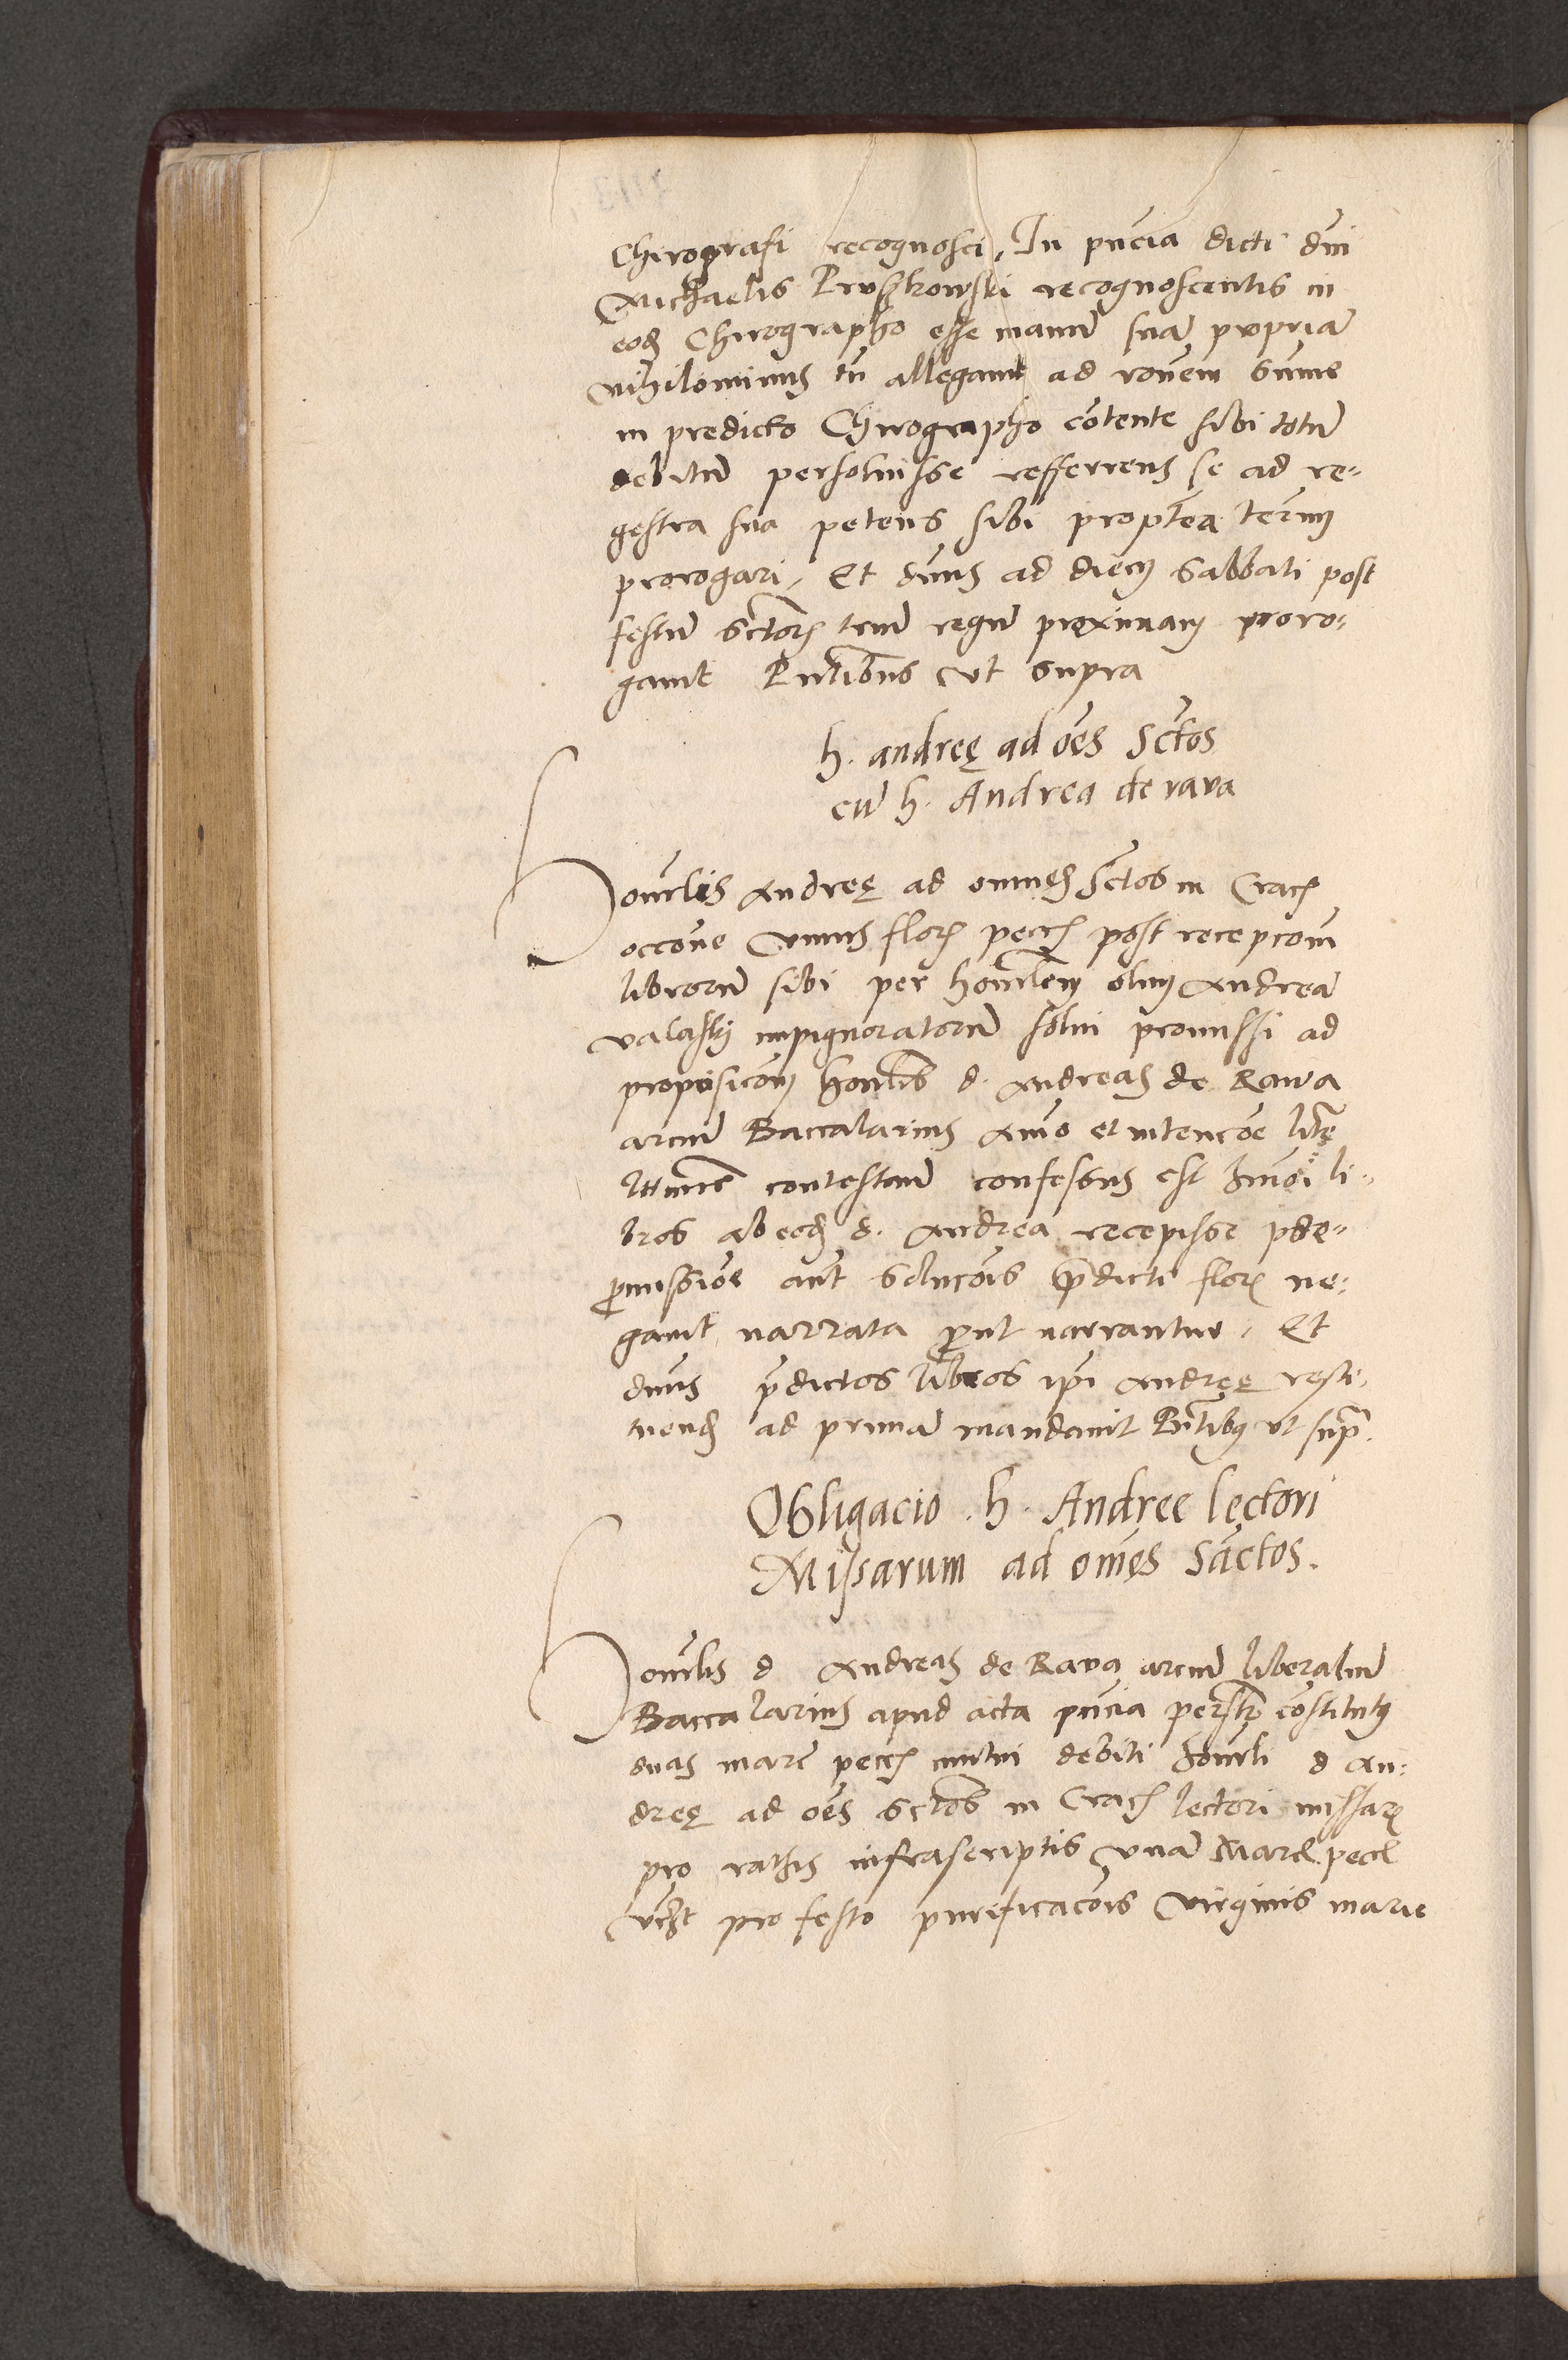 Chirografi recognosci, In pn̄cia dicti dn̄i
Michaelis Pruszkowski recognoscentis in
eod̄ Chirographo esse manū suā propriā
nihilominus tn̄ allegauit ad rōnem summe
in predicto Chirographo cōtente sibi totū
debitū persoluisse refferens se ad re-
gestra sua petens sibi propterea term̄
prorogari, Et dn̄us ad diem Sabbati post
festū Sctor̄ triū regū proximam proro-
gauit Pn̄tibus vt supra
h. andreę ad oēs Sctōs
cū h. Andrea de rava
Honrlis Andreę ad omnes Sctōs in Crac̄
occōne vnius flor̄ pecc̄ post recepcōm
librorū sibi per honrlem olim Andreā
valaski impignoratorū solui promissi ad
proposicōm honrlis d. Andreas de Rawa
arciū Baccalarius aīo et intencōe litē
contestan̄ confessus est huiōi li-
bros ab eod̄ d. Andrea recepisse pde-
promissiōe aūt solucōis p̄dicti flor̄ ne-
gauit narrata put narrantur, Et
dn̄us p̄dictos libros ip̄i Andreę resti-
tuend̄ ad primā mandauit Pn̄tibus vt sup̄
Obligacio . h. Andree lectori
Missarum ad omēs Sāctos.
Honrlis d Andreas de Rava arciū liberaliū
Baccalarius apud acta pn̄cia persr̄ cōstitutus
duas marc̄ pecc̄ mutui debiti honrli d An-
dreę ad oēs Sctōs in Crac̄ lectori missar̄
pro rathis infrascriptis vnā Marc̄. pecc̄
vczt pro festo purificacōis virginis marie